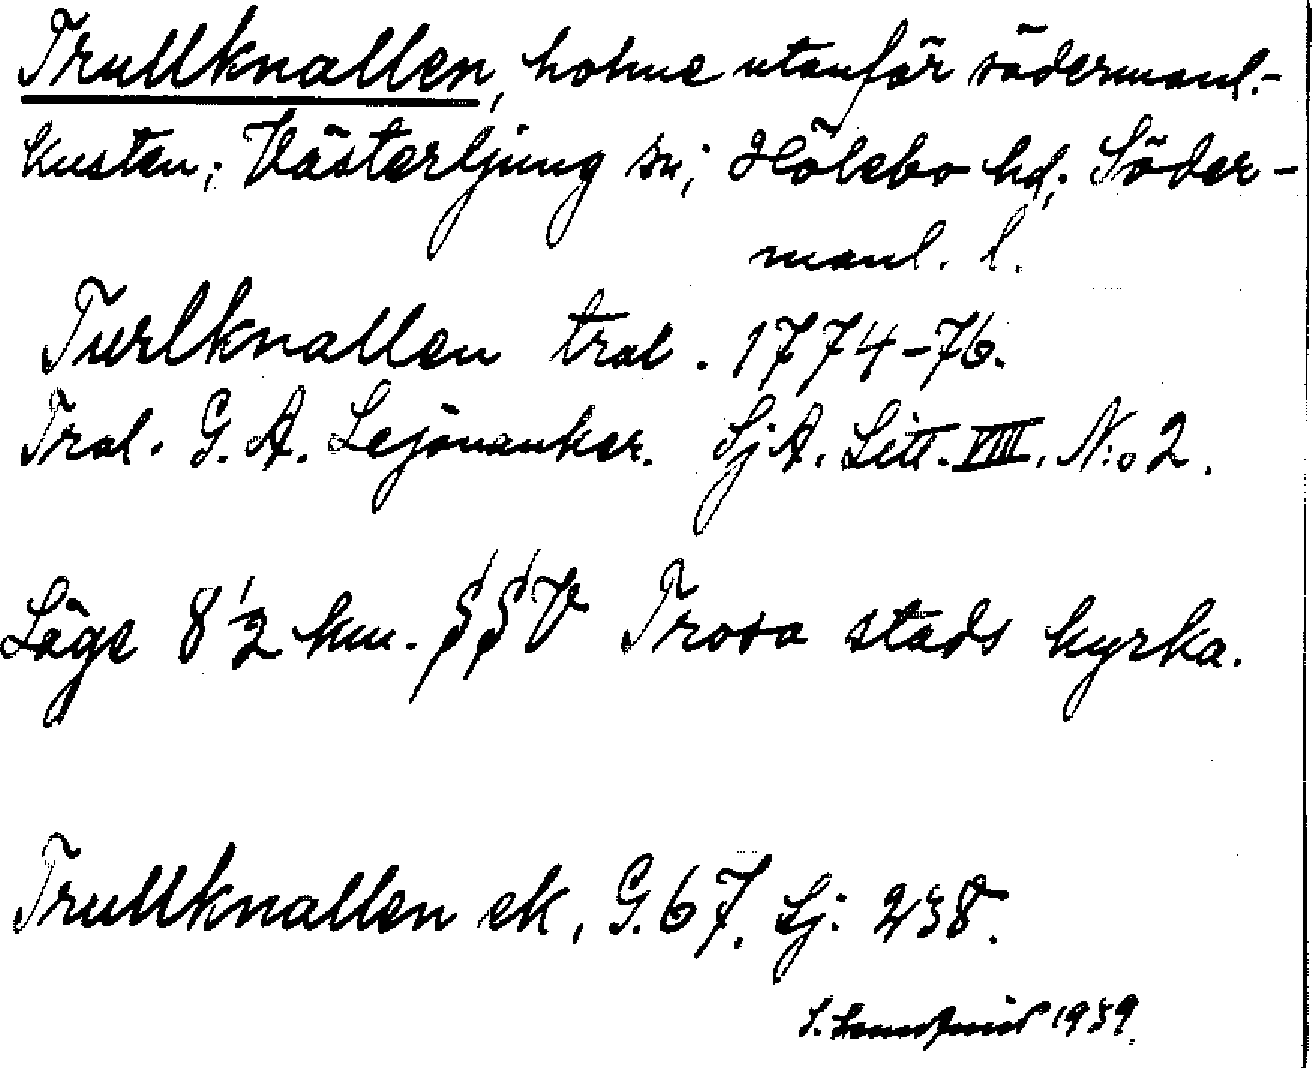 Trullknallen, holme utanför södermanl.-
kusten; Västerljung sn; Hölebo hd; Söder-
manl. l.
Turlknallen tral. 1774-76.
Tral. G. A. Lejonanker. SjA. Litt. VIII. N:o 2.
Läge 8 1/2 km. SSV Trosa stads kyrka.
Trullknallen ek, G. 67. Sj: 238.
S. 1939.